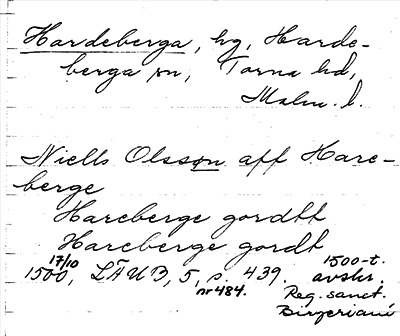 Hardeberga, hg, Harde-
berga sn, Torna hd,
Malm. l.
Niells Olsson aff Hare-
berge
Hareberge gordtt
Hareberge gordt
17/10 1500, LÄUB, 5, s. 439. 1500-t.
nr 484. avskr.
Reg. sanct.
Birgeriani